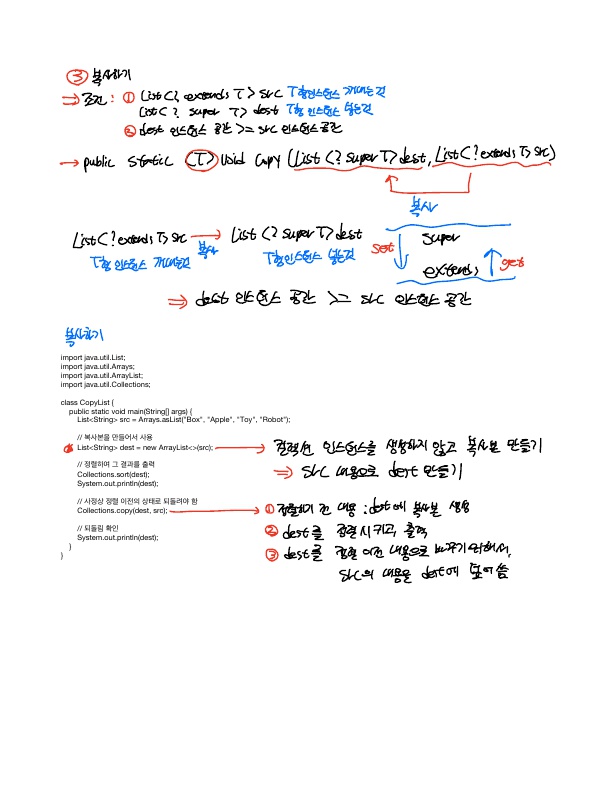 ③ 복사하기
⇒ 조건 : ① List<? extends T> src T형 인스턴스 꺼내는것
List<? super T> dest T형 인스턴스 넣는것
② dest 인스턴스 공간 >= src 인스턴스 공간
→ public static <T> void copy (List<? super T> dest, List<? extends T> src)
복사
List<? extends T> src → List<? super T> dest
복사
T형 인스턴스 꺼내는것 T형 인스턴스 넣는것
super
set get
extends
⇒ dest 인스턴스 공간 >= src 인스턴스 공간
복사하기
import java.util.List;
import java.util.Arrays;
import java.util.ArrayList;
import java.util.Collections;
class CopyList {
public static void main(String[] args) {
List<String> src = Arrays.asList("Box", "Apple", "Toy", "Robot");
// 복사본을 만들어서 사용
List<String> dest = new ArrayList<>(src); → 인스턴스를 생성하지 않고 복사본 만들기
⇒ src 내용으로 dest 만들기
// 정렬하여 그 결과를 출력
Collections.sort(dest);
System.out.println(dest);
// 사정상 정렬 이전의 상태로 되돌려야 함
Collections.copy(dest, src); → ① 정렬하기 전 내용 : dest에 복사본 생성
② dest를 정렬시키고, 출력
// 되돌림 확인
System.out.println(dest);
③ dest를 정렬 이전 내용으로 바꾸기 위해서,
src의 내용을 dest에 덮어씀
}
}